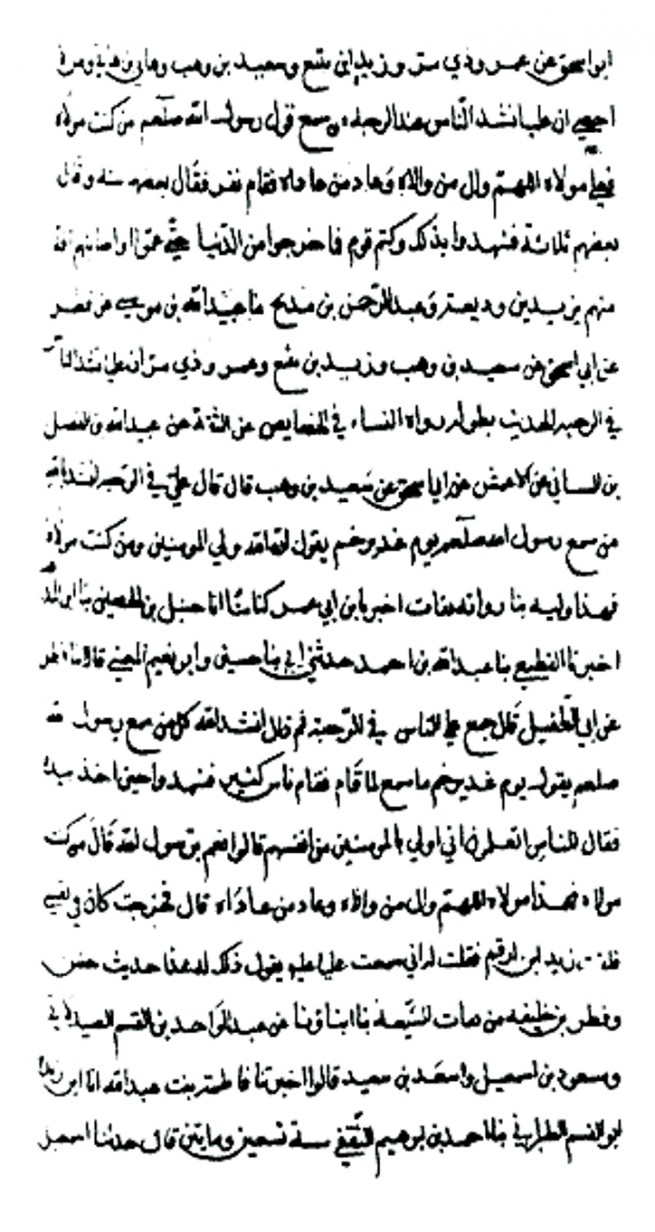 ابو اسحق عن عمرو ذي مر وزيد بن يثع وسعيد بن وهب وهاني بن هاني ومن لا
احصي ان عليا نشد الناس عند الرحبة من سمع قول رسول الله صلعم من كنت مولاه
فعلي مولاه اللهم وال من والاه وعاد من عاداه فقام نفر فقال بعضهم ستة وقال
بعضهم ثلاثة فشهدوا بذلك وكتم قوم فما خرجوا من الدنيا حتى عموا او اصابتهم افة
منهم يزيد بن وديعة وعبد الرحمن بن مدلج نا عبيد الله بن موسى عن فطر
عن ابي اسحق عن سعيد بن وهب وزيد بن يثع وعمرو ذي مر ان عليا نشد الناس
في الرحبة الحديث بطوله رواه النساء في الخصايص عن الثقة عن عبيد الله الفضل
بن الساني عن الاعمش عن ابي اسحق عن سعيد بن وهب قال قال علي في الرحبة انشد بالله
من سمع رسول الله صلعم يوم غدير خم يقول الله ولي المومنين ومن كنت مولاه
فهذا وليه رواته ثقات اخبرنا ابن ابي عمر كتابة انا حنبل بن الحصين بنا ابن
اخبرنا القطيعي بنا عبد الله بن احمد حدثني ابي بنا حسين وابو نعيم المعني قالا بنا فطر
عن ابي الطفيل قال جمع علي الناس في الرحبة ثم قال انشد الله كل من سمع رسول الله
صلعم يقول يوم غدير خم ما سمع لما قام فقام ناس كثير فشهدوا حين اخذ بيده
فقال للناس اتعلمون اني اولي بالمومنين من انفسهم قالوا نعم يرسول الله قال من كنت
مولاه فهذا مولاه اللهم وال من والاه وعاد من عاداه قال فخرجت كان في نفسي
زيد ابن ارقم فقلت له اني سمعت عليا عليه يقول ذلك له هذا حديث حسن
وفطر بن خليفة من ثقات الشيعة بنا ابناونا عن عبد الواحد بن القسم الصيدلاني
ومسعود بن اسمعيل واسعد بن سعيد قالوا اخبرتنا فاطمة بنت عبد الله انا ابن ريذة
ابو القسم الطبراني بنا احمد بن ابرهيم الثقفي سنة تسعين ومايتين قال حدثنا اسمعيل